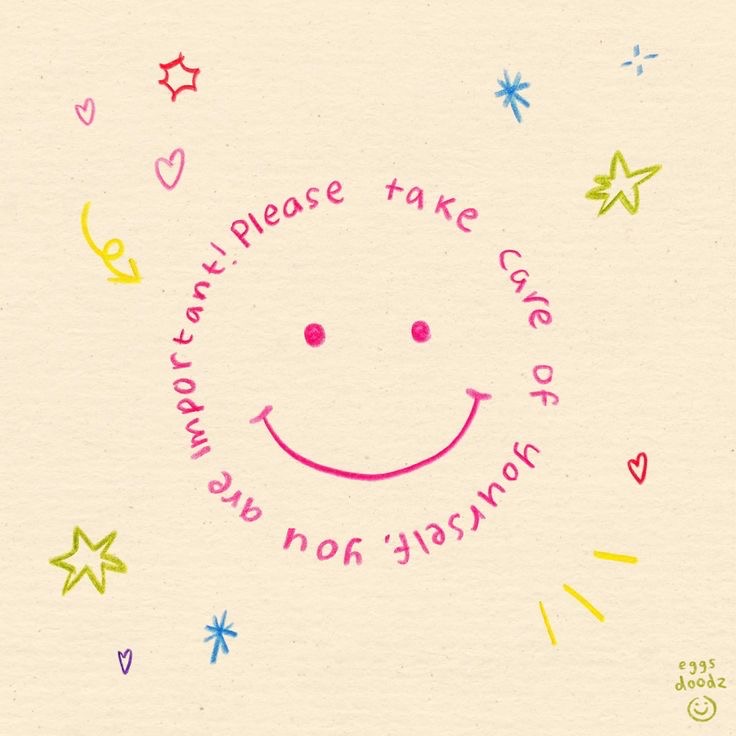 Please take care of yourself, you are important!
eggs
doodz